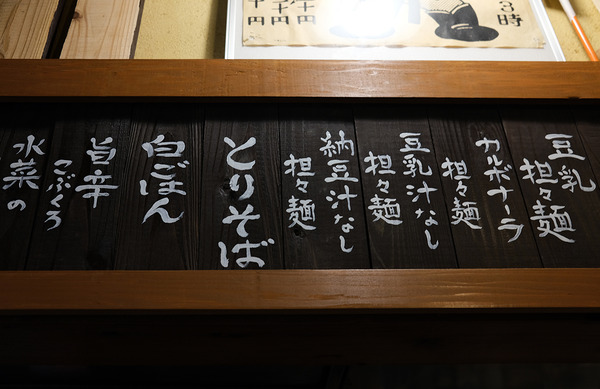 3時
千円
豆乳
担々麺
カルボナーラ
担々麺
豆乳汁なし
担々麺
納豆汁なし
担々麺
とりそば
白ごはん
旨辛
こぶくろ
水菜の